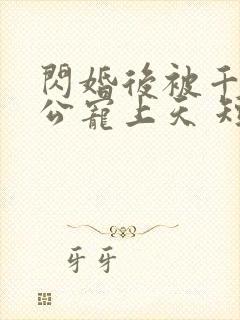 閃婚後被千
公寵上天 短
牙牙